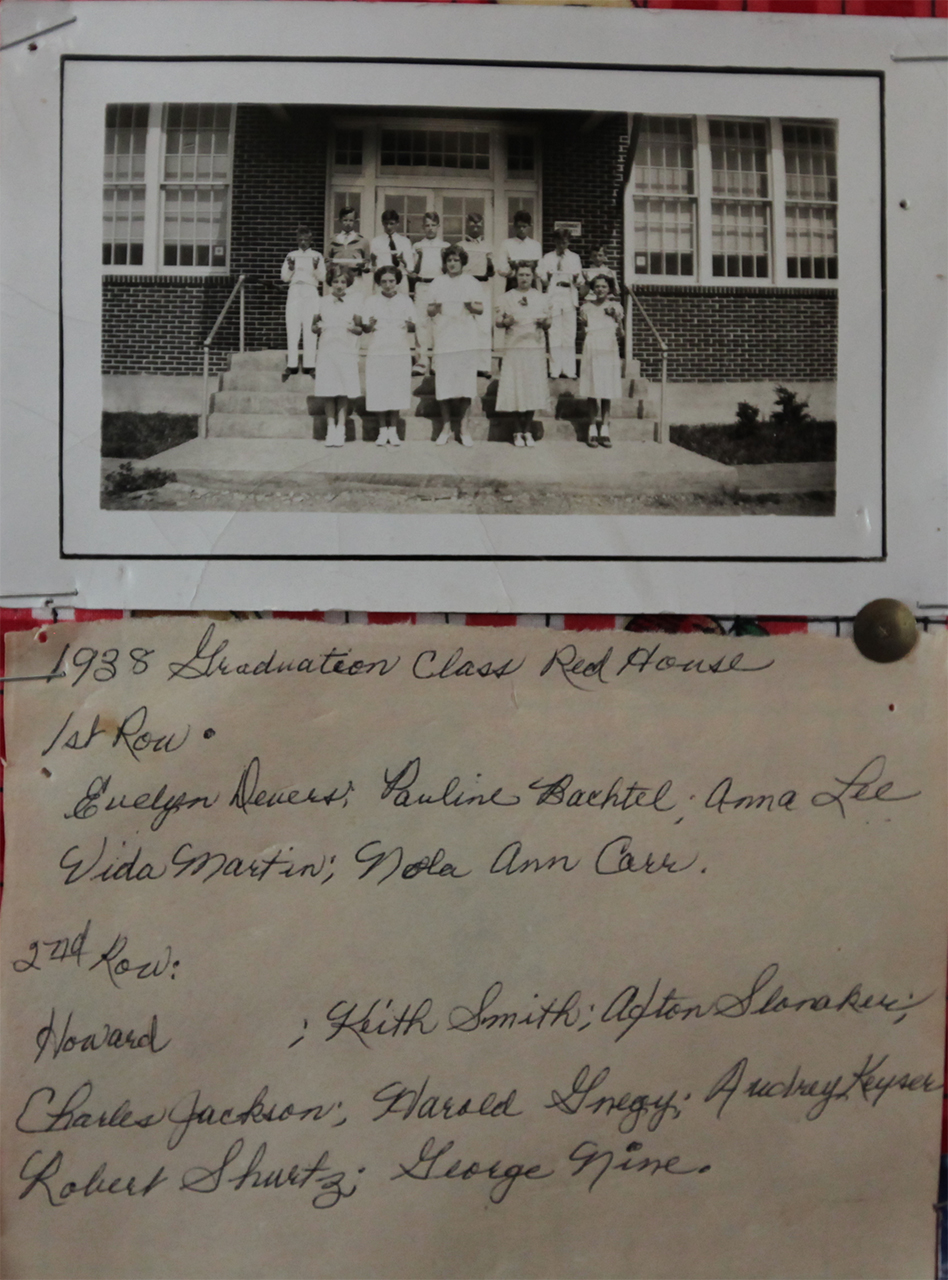 1938 Graduation Class Red House
1st Row.
Evelyn Devers; Pauline Bachtel; Anna Lee
Vida Martin; Nola Ann Carr.
2nd Row:
Howard ; Keith Smith; Afton Slonaker;
Charles Jackson; Harold Gnegy; Audrey Keyser
Robert Shurtz; George Nine.